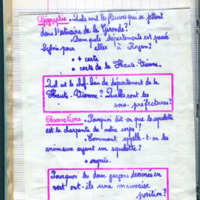 Géographie : Quels sont les fleuves qui se jettent
dans l'estuaire de la Gironde ?
Dans quels départements est passée
Sylvie pour aller à Royan ?
+ carte
+ carte de la Haute-Vienne.
Quel est le chef-lieu de département de la
Haute-Vienne ? Quelles sont les
sous-préfectures ?
Observations : Pourquoi dit-on que le squelette
est la charpente de notre corps ?
Comment appelle-t-on les
animaux ayant un squelette ?
+ croquis.
Pourquoi les deux garçons dessinés en
ont-ils une mauvaise
position ?